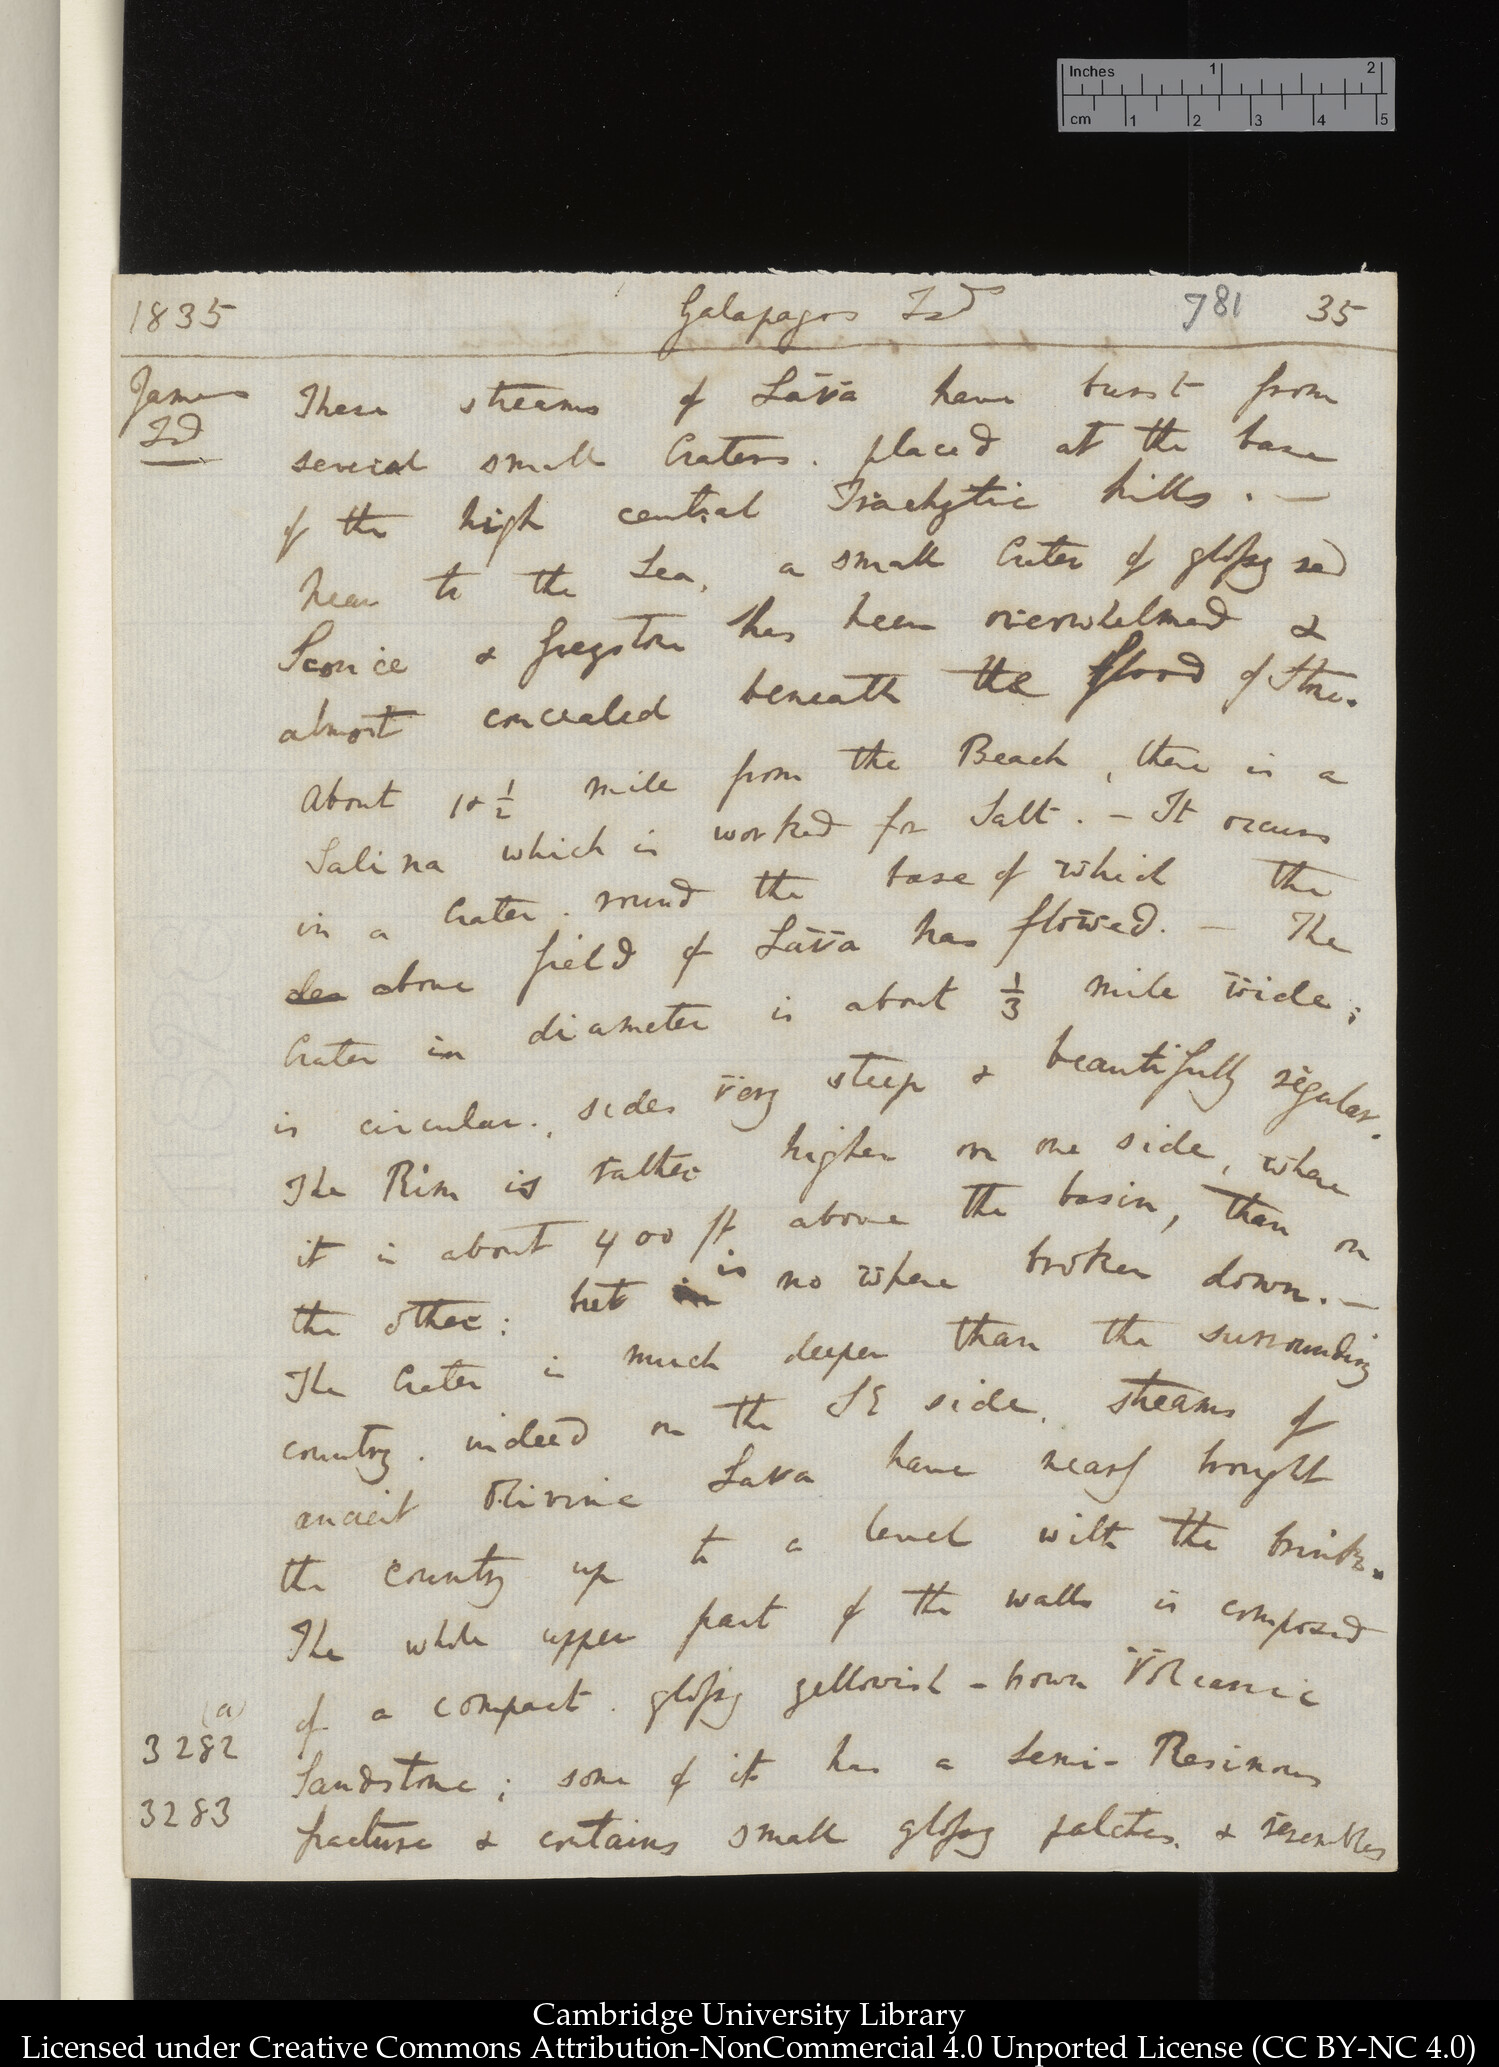 Inches 1 2
cm 1 2 3 4 5
1835 Galapagos Isd 781 35
James
Isd
These streams of Lava have burst from
several small Craters. placed at the base
of the high central Trachytic hills. —
near to the Sea, a small Crater of glossy red
Scoriæ & Greystone has been overwhelmed &
almost concealed beneath the flood of Stone.
About 1 & ½ mile from the Beach, there is a
Salina which is worked for Salt. — It occurs
in a Crater. round the base of which the
above field of Lava has flowed. — The
Crater in diameter is about ⅓ mile wide;
is circular., sides very steep & beautifully regular.
The Rim is rather higher on one side, where
it is about 400 ft above the basin, than on
the other: but is no where broken down. —
The Crater is much deeper than the surrounding
country. indeed on the SE side, streams of
ancient Olivine Lava have nearly brought
the country up to a level with the brink.
The whole upper part of the walls is composed
of a compact. glossy yellowish-brown Volcanic
(a)
3282 Sandstone; some of it has a Semi-Resinous
3283 fracture & contains small glossy patches. & resembles
Cambridge University Library
Licensed under Creative Commons Attribution-NonCommercial 4.0 Unported License (CC BY-NC 4.0)